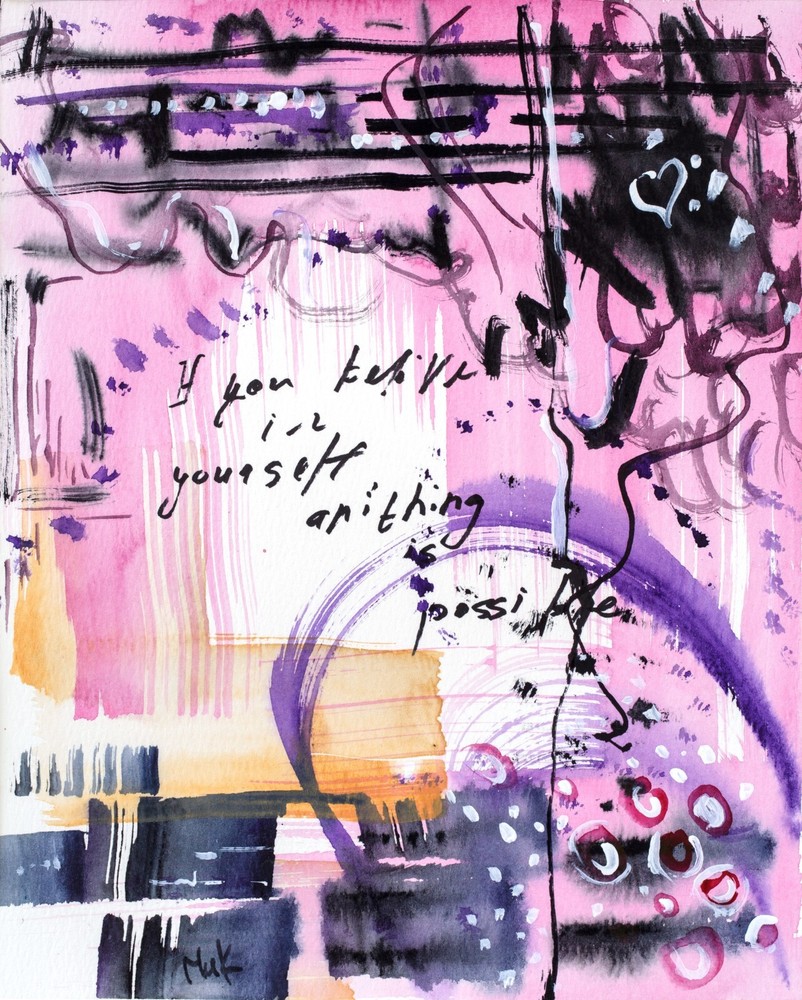 If you belive
in
yourself
anithing
is
possible
Muk